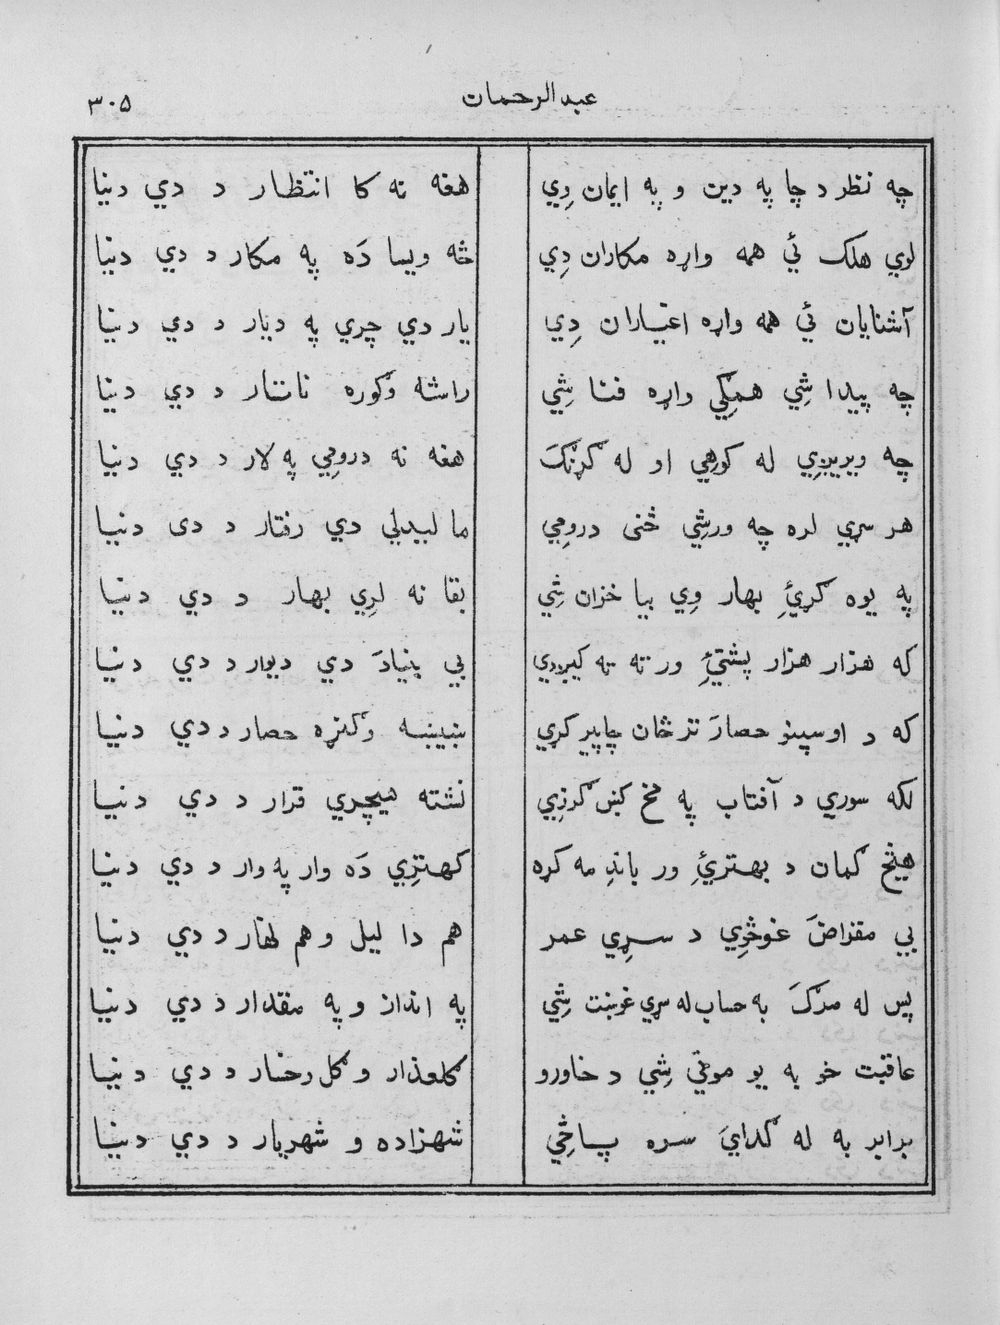 عبد الرحمان ٣٠٥
چه نظر د چا په دين و په ايمان دِي هغه نه کا انتظار د دي دنيا
لوي هلک ئي همه واړه مکاران دِي څه ويسا دَه په مکار د دي دنيا
آشنايان ئي همه واړه اغياران دِي يار دي چري په ديار د دي دنيا
چه پيدا شِي همګِي واړه فنا شِي راشه وګوره ناتار د دي دنيا
چه ويريږِي له کوهي او له ګړنګَ هغه نه درومِي په لار د دي دنيا
هر سړي لره چه ورشِي څنی درومِي ما ليدلي دي رفتار د دی دنيا
په يوه ګړئِ بهار وِي بيا خزان شِي بقا نه لرِي بهار د دي دنيا
که هزار هزار پشتئِ ور ته ته کيږدي بي بنيادَ دي ديوار د دي دنيا
که د اوسپنو حصارَ تر ځان چاپير کړي ښيښه وګڼړه حصار د دي دنيا
لکه سوري د آفتاب په مخ کښ ګرزِي نشته هيچري قرار د دي دنيا
هيڅ ګمان د بهترئِ ور باندِ مه کړه کهترِي دَه وار په وار د دي دنيا
بي مقراضَ غوڅوِي د سړِي عمر هم دا ليل و هم نهار د دي دنيا
پس له مرګَ به حساب له سړي غوښت شِي په انداز و په مقدار د دي دنيا
عاقبت خو به يو موټي شِي د خاورو ګلعذار و ګل رخسار د دي دنيا
برابر به له ګدايَ سره پاڅِي شهزاده و شهريار د دي دنيا